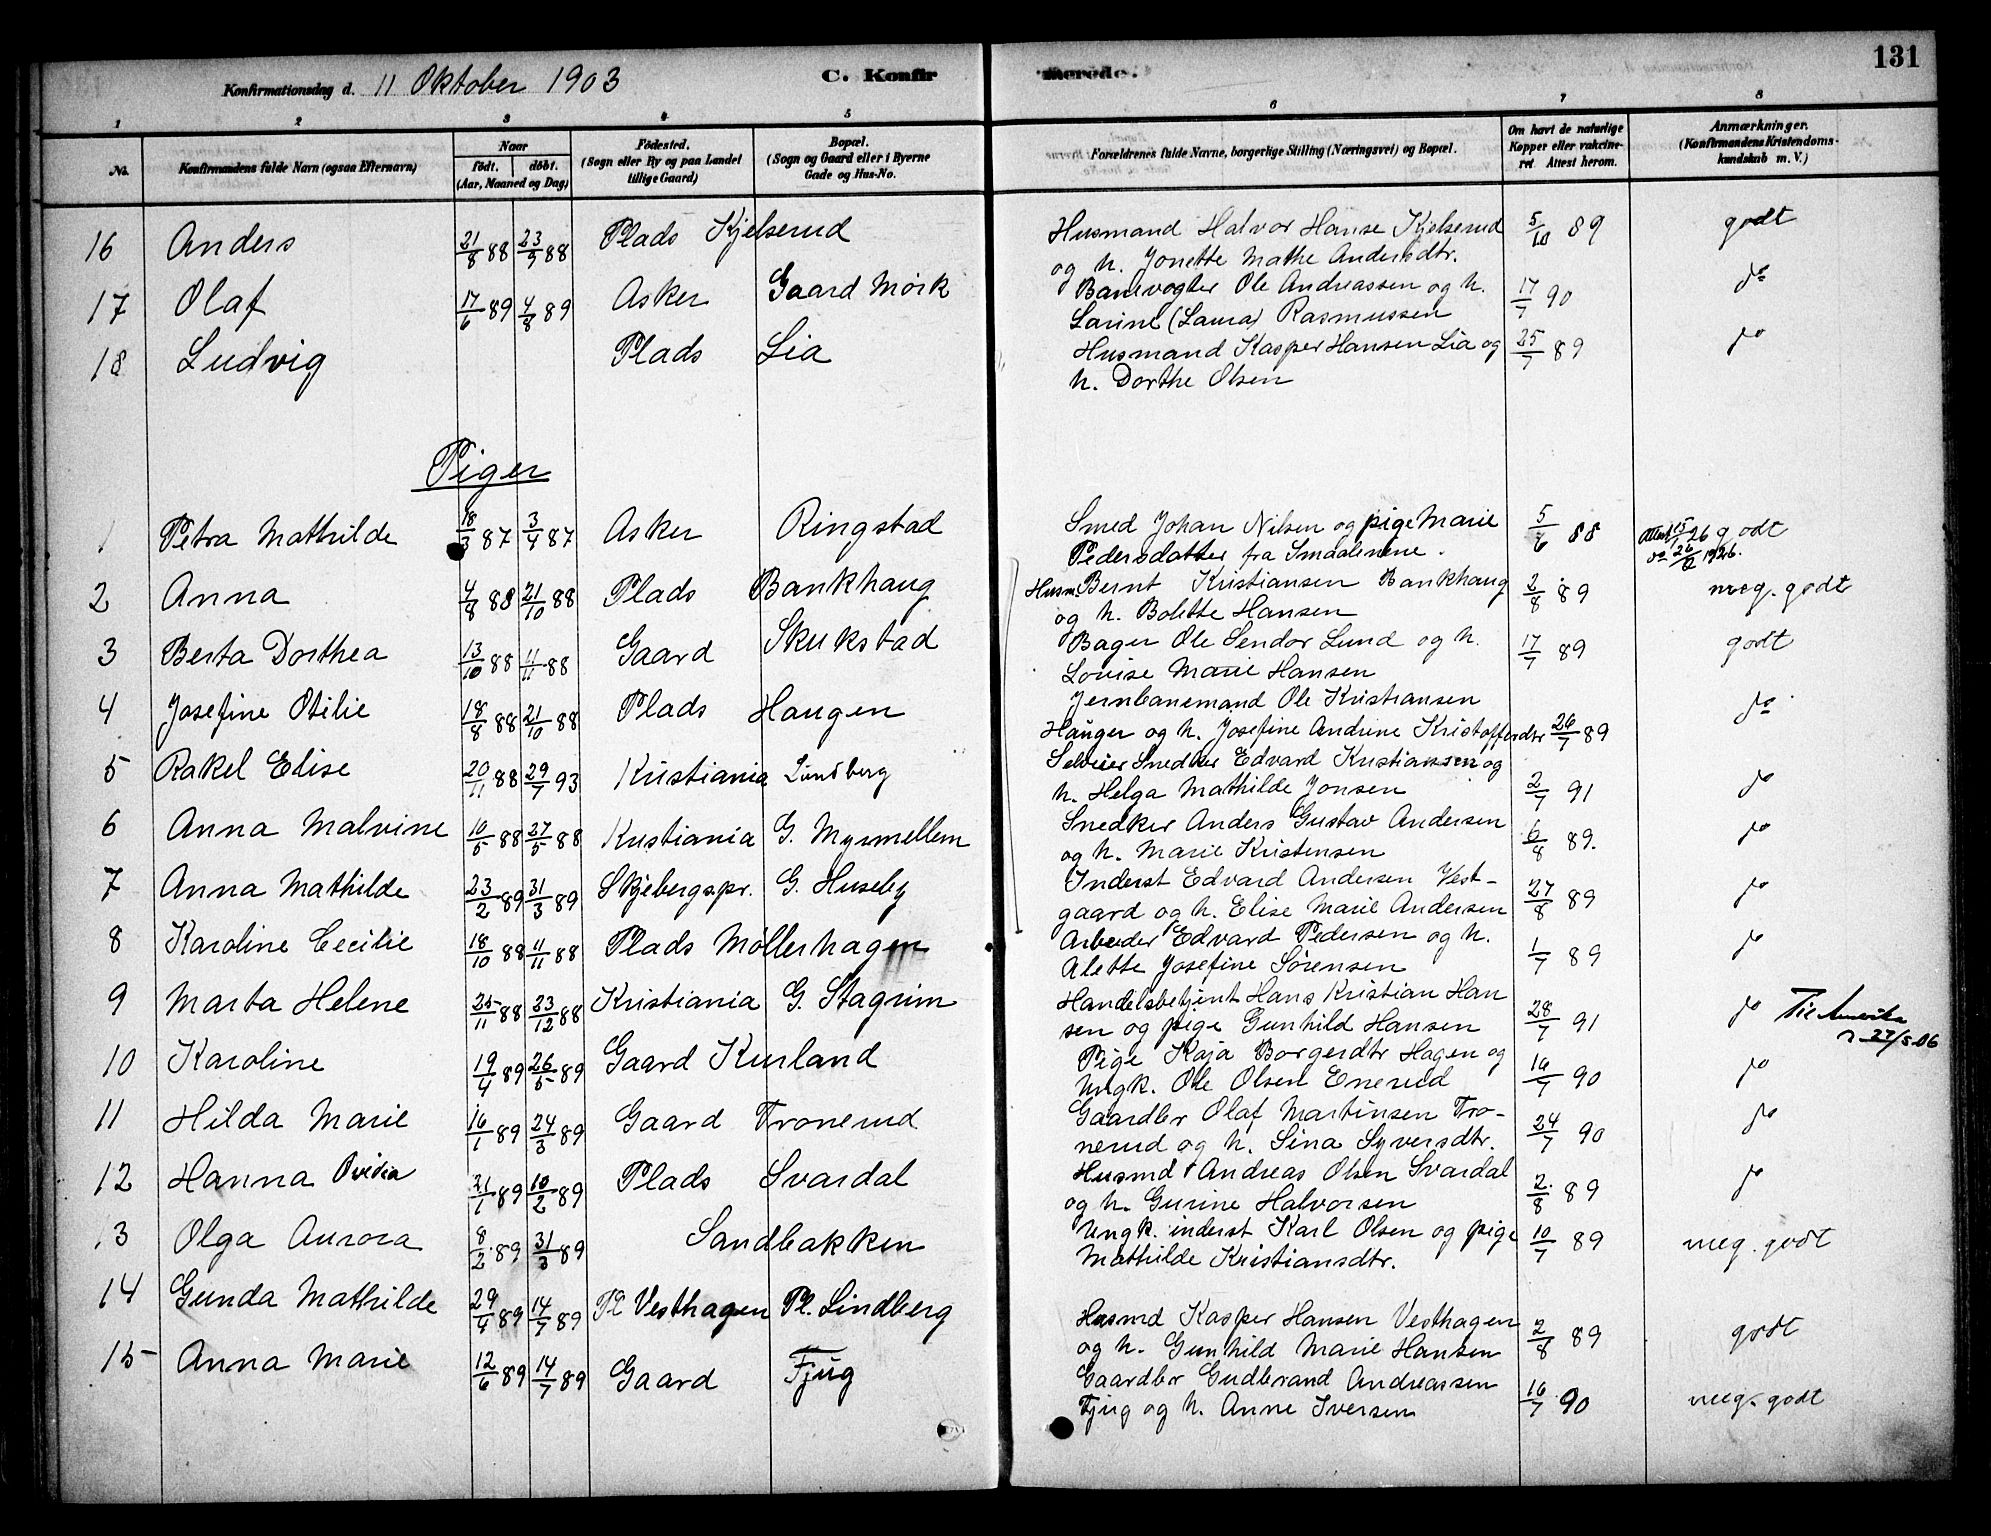 131
Konfirmationsdag d. 11 Oktober 1903 C. Konfir merede.
1 2 3 4 5 6 7 8
No. Konfirmandens fulde Navn (ogsaa Efternavn)
Naar født. døbt. (Aar, Maaned og Dag)
Fødested. (Sogn eller By og paa Landet tillige Gaard)
Bopæl. (Sogn og Gaard eller i Byerne Gade og Hus-No.
Forældrenes fulde Navne, borgerlige Stilling (Næringsvei) og Bopæl.
Om havt de naturlige Kopper eller vakcineret Attest herom.
Anmærkninger. (Konfirmandens Kristendomskundskab m. V.)
16 Anders 21/8 88 23/9 88 Plads Kjelserud Husmand Halvor Hanse Kjelserud 5/10 89 godt
og h. Jonette Mathe Andersdtr.
17 Olaf 17/6 89 4/8 89 Asker Gaard Mörk Banevogter Ole Andreassen og h. 17/7 90 do
Larine (Laura) Rasmussen
18 Ludvig Plads Lia Husmand Kasper Hansen Lia og 25/7 89 do
h. Dorthe Olsen
Piger
1 Petra Mathilde 18/3 87 3/4 87 Asker Ringstad Smed Johan Nilsen og pige Marie 5/6 88 Attest 15/1 26 godt
Pedersdatter fra Smaalenene. do 26/2 1926.
2 Anna 4/8 88 21/10 88 Plads Bankhaug Husm. Bernt Kristiansen Bankhaug 2/8 89 meg. godt
og h. Bolette Hansen
3 Berta Dorthea 13/10 88 11/11 88 Gaard Skukstad Bager Ole Sendor Lund og h. 17/7 89 godt
Lovise Marie Hansen
4 Josefine Otilie 18/8 88 21/10 88 Plads Haugen Jernbanemand Ole Kristiansen do
Hauger og h. Josefine Andrine Kristoffersdtr 26/7 89
5 Rakel Elise 20/11 88 29/7 93 Kristiania Lundberg Selveier Snedker Edvard Kristianssen og
h. Helga Mathilde Jonsen 2/7 91 do
6 Anna Malvine 10/5 88 27/5 88 Kristiania G. Myrmellem Snedker Anders Gustav Andersen 6/8 89. do
og h. Marie Kristensen
7 Anna Mathilde 23/2 89 31/3 89 Skjebergspr. G. Huseby Inderst Edvard Andersen Vest- 27/8 89 do
gaard og h. Elise Marie Andersen
8 Karoline Cecilie 18/10 88 11/11 88 Plads Möllerhagen Arbeider Edvard Pedersen og h. 1/7 89 do
Alette Josefine Sörensen
9 Marta Helene 25/11 88 23/12 88 Kristiania G. Stagrim Handelsbetjent Hans Kristian Han 28/7 91 do Til Amerika
sen og pige Gunhild Hansen 27/5 06
10 Karoline 19/4 89 26/5 89 Gaard Kurland Pige Kaja Borgerdtr Hagen og 16/7 90 do
Ungk. Ole Olsen Enerud
11 Hilda Marie 16/1 89 24/3 89 Gaard Tronerud Gaardbr Olaf Martinsen Tro- 24/7 90 do
nerud og h. Lina Syversdtr.
12 Hanna Ovidia 21/1 89 10/2 89 Plads Svardal Husmd Andreas Olsen Svardal 2/8 89 do
og h. Gurine Halvorsen
13 Olga Aurora 8/2 89 31/3 89 Sandbakken Ungk. inderst Karl Olsen og pige 10/7 89 meg. godt
Mathilde Kristiansdtr.
14 Gunda Mathilde 29/4 89 14/7 89 Pl Vesthagen Pl. Lindberg Husmd Kasper Hansen Vesthagen 2/8 89 godt
og h. Gunhild Marie Hansen
15 Anna Marie 12/6 89 14/7 89 Gaard Fjug Gaardbr Gudbrand Andreassen 16/7 90 meg. godt
Fjug og h. Anne Iversen